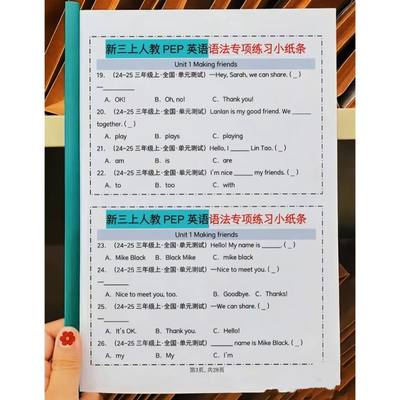 新三上人教 PEP 英语语法专项练习小纸条
Unit 1 Making friends
19. (24-25 三年级上·全国·单元测试) —Hey, Sarah, we can share. ( _ )
—________
A. OK! B. Oh, no! C. Thank you!
20. (24-25 三年级上·全国·单元测试) Lanlan is my good friend. We _____
together. ( _ )
A. play B. plays C. playing
21. (24-25 三年级上·全国·单元测试) Hello, I _____ Lin Tao. ( _ )
A. am B. is C. are
22. (24-25 三年级上·全国·单元测试) I'm nice _____ my friends. ( _ )
A. to B. too C. with
新三上人教 PEP 英语语法专项练习小纸条
Unit 1 Making friends
23. (24-25 三年级上·全国·单元测试) Hello! My name is _____. ( _ )
A. Mike Black B. Black Mike C. mike black
24. (24-25 三年级上·全国·单元测试) —Nice to meet you. ( _ )
—________
A. Nice to meet you, too. B. Goodbye. C. Thanks!
25. (24-25 三年级上·全国·单元测试) —We can share. ( _ )
—________
A. It's OK. B. Thank you. C. Hello!
26. (24-25 三年级上·全国·单元测试) ______ name is Mike Black. ( _ )
A. my B. My C. I'm
第3页, 共28页